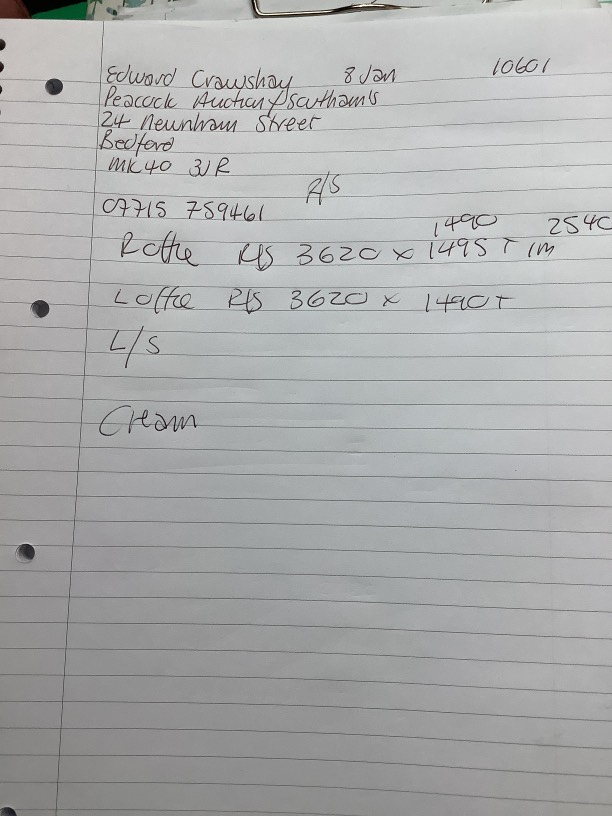 Edward Crawshay 8 Jan 10601
Peacock Auction / Southam's
24 Newnham Street
Bedford
MK40 3JR
R/S
07715 759461
1490 2540
R offce R/S 3620 x 1495 T 1M
L offce R/S 3620 x 1490 T
L/S
Cream